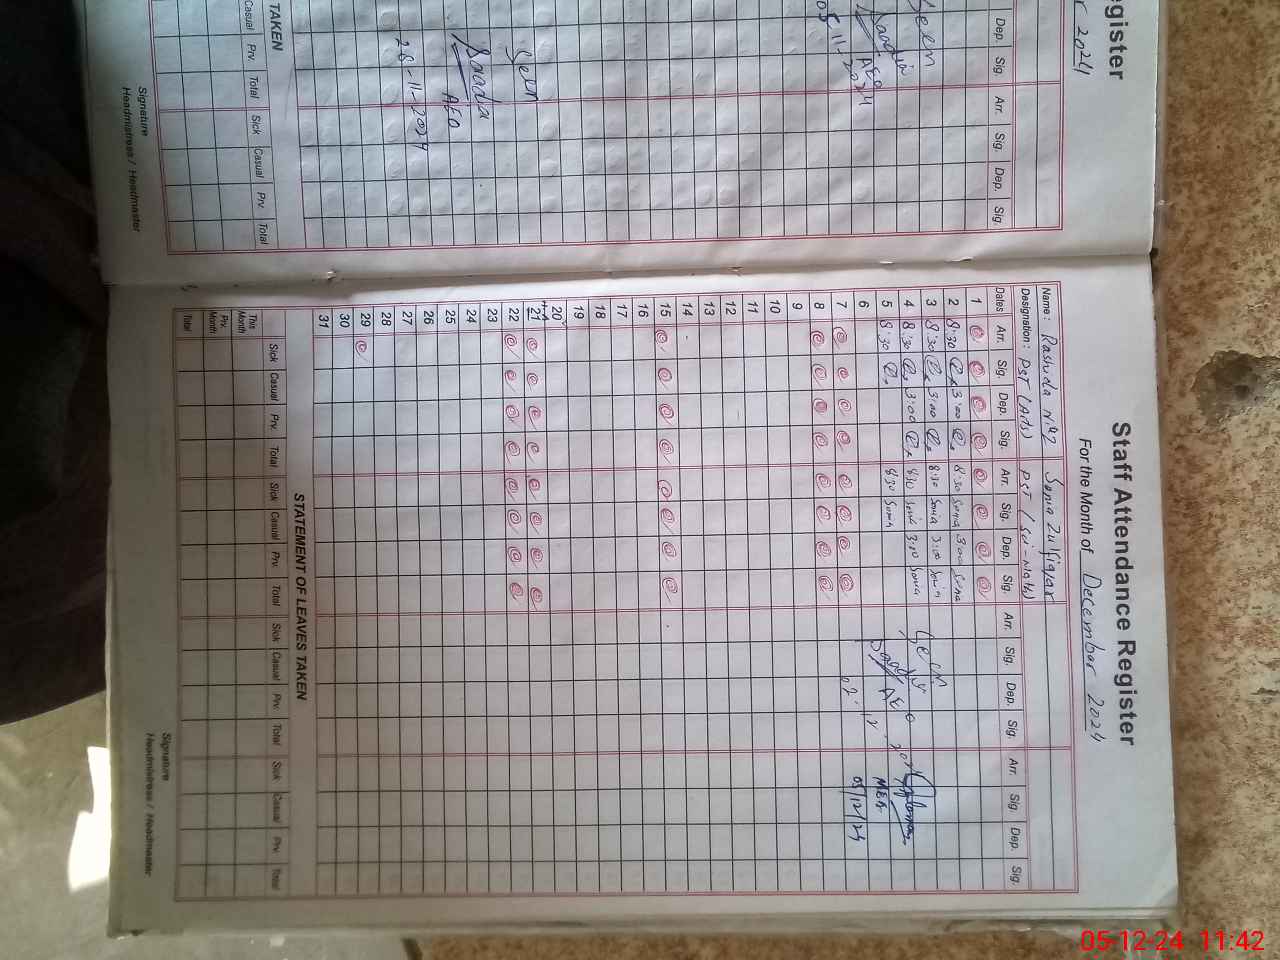 Staff Attendance Register
For the Month of December 2024
Name: Rashida Sonia Zulfiqar
Designation: PST (Arts) PST (Sci-Math)
Dates Arr. Sig. Dep. Sig. Arr. Sig. Dep. Sig. Arr. Sig. Dep. Sig. Arr. Sig. Dep. Sig.
1
2 8:30 3:00 8:30 Sonia 3:00 Sonia
3 8:30 3:00 8:30 Sonia 3:00 Sonia
4 8:30 3:00 8:30 Sonia 3:00 Sonia
5 8:30 8:30 Sonia
6
7
8
9
10
11
12
13
14
15
16
17
18
19
20
21
22
23
24
25
26
27
28
29
30
31
Seen
Saadia
AEO
MEA
05/12/24
STATEMENT OF LEAVES TAKEN
Sick Casual Prv. Total Sick Casual Prv. Total Sick Casual Prv. Total Sick Casual Prv. Total
This Month
Prv. Month
Total
Signature
Headmistress / Headmaster
egister
2024
Dep. Sig. Arr. Sig. Dep. Sig.
Seen
Saadia
AEO
05-11-2024
Seen
Saadia
AEO
28-11-2024
TAKEN
Casual Prv. Total Sick Casual Prv. Total
Signature
Headmistress / Headmaster
05-12-24 11:42